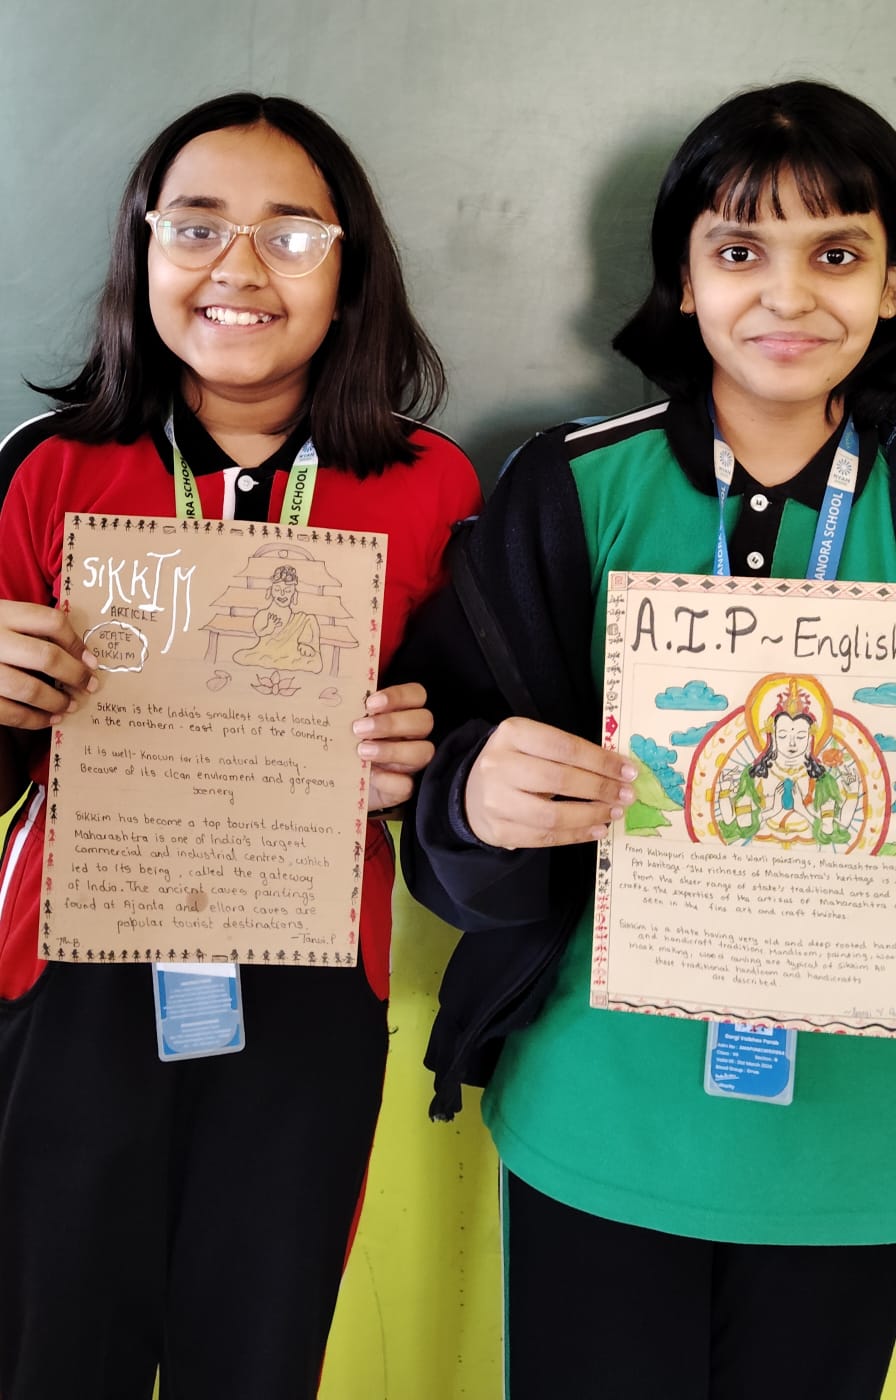 SIKKIM
ARTICLE
STATE
OF
SIKKIM
Sikkim is the India's smallest state located
in the northern - east part of the Country.
It is well-known for its natural beauty.
Because of its clean enviroment and gorgeous
scenery
Sikkim has become a top tourist destination.
Maharashtra is one of India's largest
commercial and industrial centres, which
led to its being, called the gateway
of India. The ancient caves paintings
found at Ajanta and ellora caves are
popular tourist destinations.
-Tanvi.P
ORA SCHOOL
RA SCHOOL
RYAN
ANORA SCHOOL
A.I.P ~ English
From Kolhapuri chappals to Warli paintings, Maharashtra has
Art heritage. The richness of Maharashtra's heritage is
from the sheer range of state's traditional arts and
crafts the experties of the artisas of Maharashtra
seen in the fine art and craft finishes.
Sikkim is a state having very old and deep rooted hand
and handicraft traditions. Handloom, painting,
mask making, wood carving are typical of sikkim. All
these traditional handloom and handicrafts
are described.
Gargi Vaibhav Parab
Class : VII
Section : B
Valid till : 31st March 2025
Blood Group :